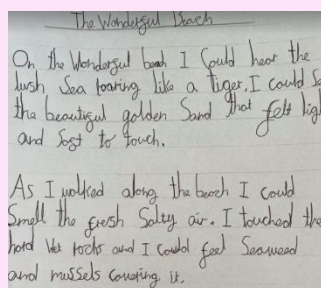 The Wonderful Beach
On the Wonderful beach I Could hear the
lush Sea roaring like a Tiger. I could Se
the beautiful golden Sand that felt lig
and Soft to touch.
As I walked along the beach I could
Smell the fresh Salty air. I touched the
hard Wet rocks and I Could feel Seaweed
and mussels covering it.